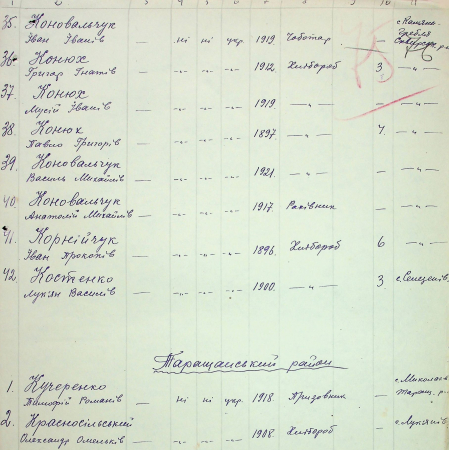 35. Коновальчук с. Кам'яна
Іван Іванів — ні ні укр. 1919. Чоботар — Гребля
36. Конюх
Григор Гнатів — -"- -"- -"- 1912. Хлібороб 3 — " —
37. Конюх
Мусій Іванів — -"- -"- -"- 1919 — " — — — " —
38. Конюх
Павло Григорів — -"- -"- -"- 1897 — " — 4. — " —
39. Коновальчук
Василь Михайлів — -"- -"- -"- 1921. — " — — — " —
40. Коновальчук
Анатолій Михайлів — -"- -"- -"- 1917. Рахівник — — " —
41. Корнійчук
Іван Прокопів — -"- -"- -"- 1896. Хлібороб 6 — " —
42. Костенко
Лук'ян Василів — -"- -"- -"- 1900. — " — 3 с.
Таращанський район
1. Кучеренко
Тимофій Романів — ні ні укр. 1918. Призовник — Таращ. р.
2. Красносільський
Олександр Омельків — -"- -"- -"- 1908. Хлібороб — с. Лук'янів